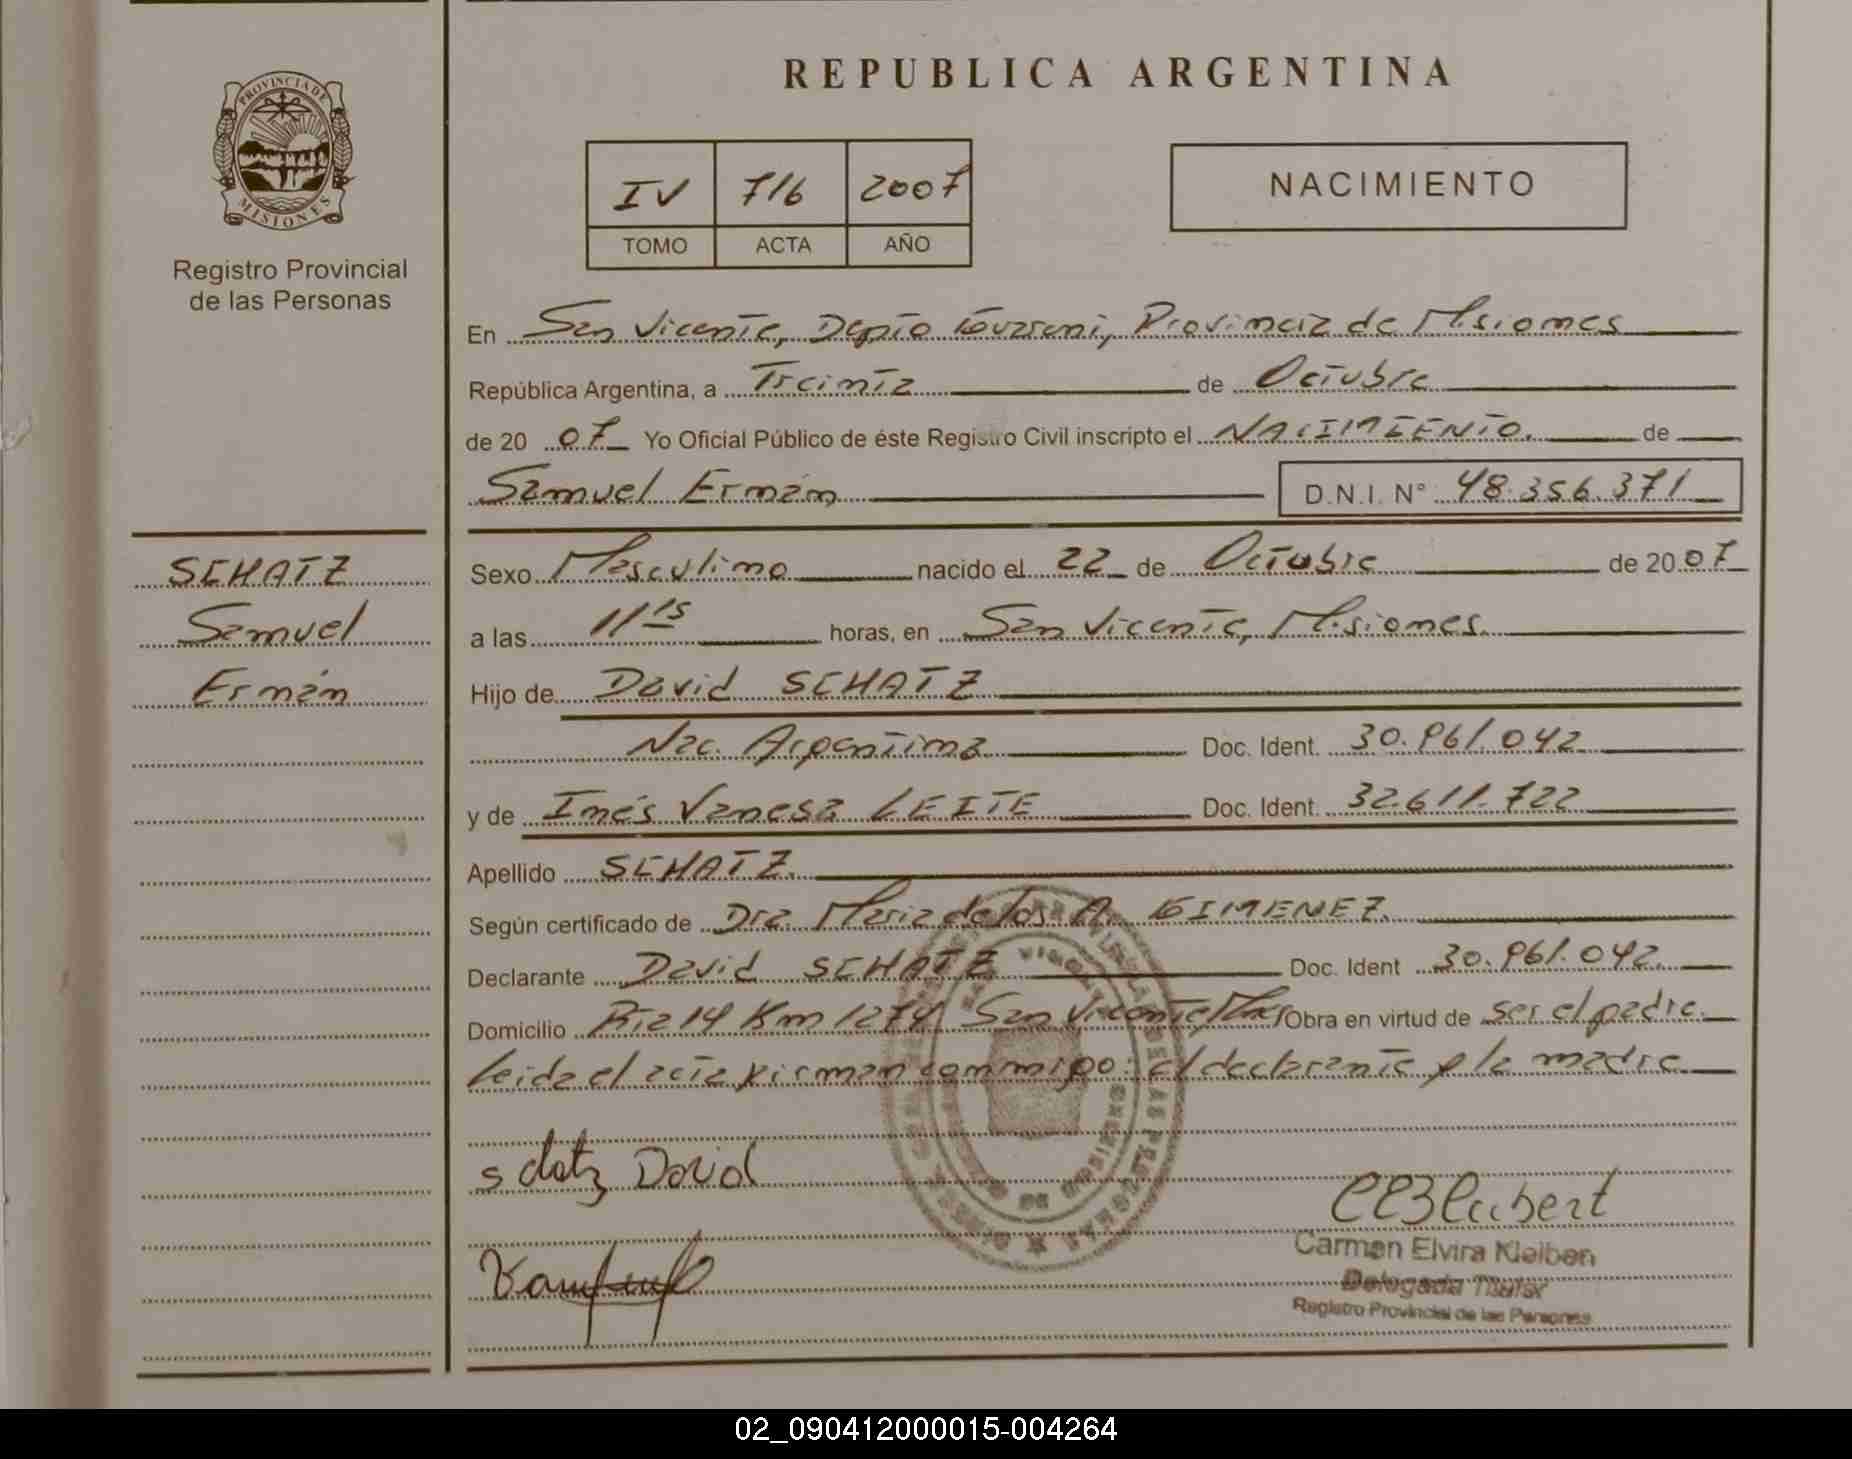 REPUBLICA ARGENTINA
PROVINCIA DE
MISIONES
Registro Provincial
de las Personas
IV 716 2007
TOMO ACTA AÑO
NACIMIENTO
En San Vicente, Depto Guarani, Provincia de Misiones
República Argentina, a Treinta de Octubre
de 20 07 Yo Oficial Público de éste Registro Civil inscripto el NACIMIENTO. de
Samuel Ernán D.N.I. N° 48.356.371
SCHATZ
Samuel
Ernán
Sexo Masculino nacido el 22 de Octubre de 20 07
a las 11 15 horas, en San Vicente, Misiones.
Hijo de David SCHATZ
Nac. Argentina Doc. Ident. 30.961.042
y de Inés Vanesa LEITE Doc. Ident. 32.611.722
Apellido SCHATZ.
Según certificado de Dra. Maria de los A. GIMENEZ.
Declarante David SCHATZ Doc. Ident 30.961.042.
Domicilio Rta 14 Km 1274 San Vicente, Mnes Obra en virtud de ser el padre.
Leida el acta firman conmigo: el declarante y la madre.
Schatz David
Carmen Elvira Kleiben
Delegada Titular
Registro Provincial de las Personas
02_090412000015-004264